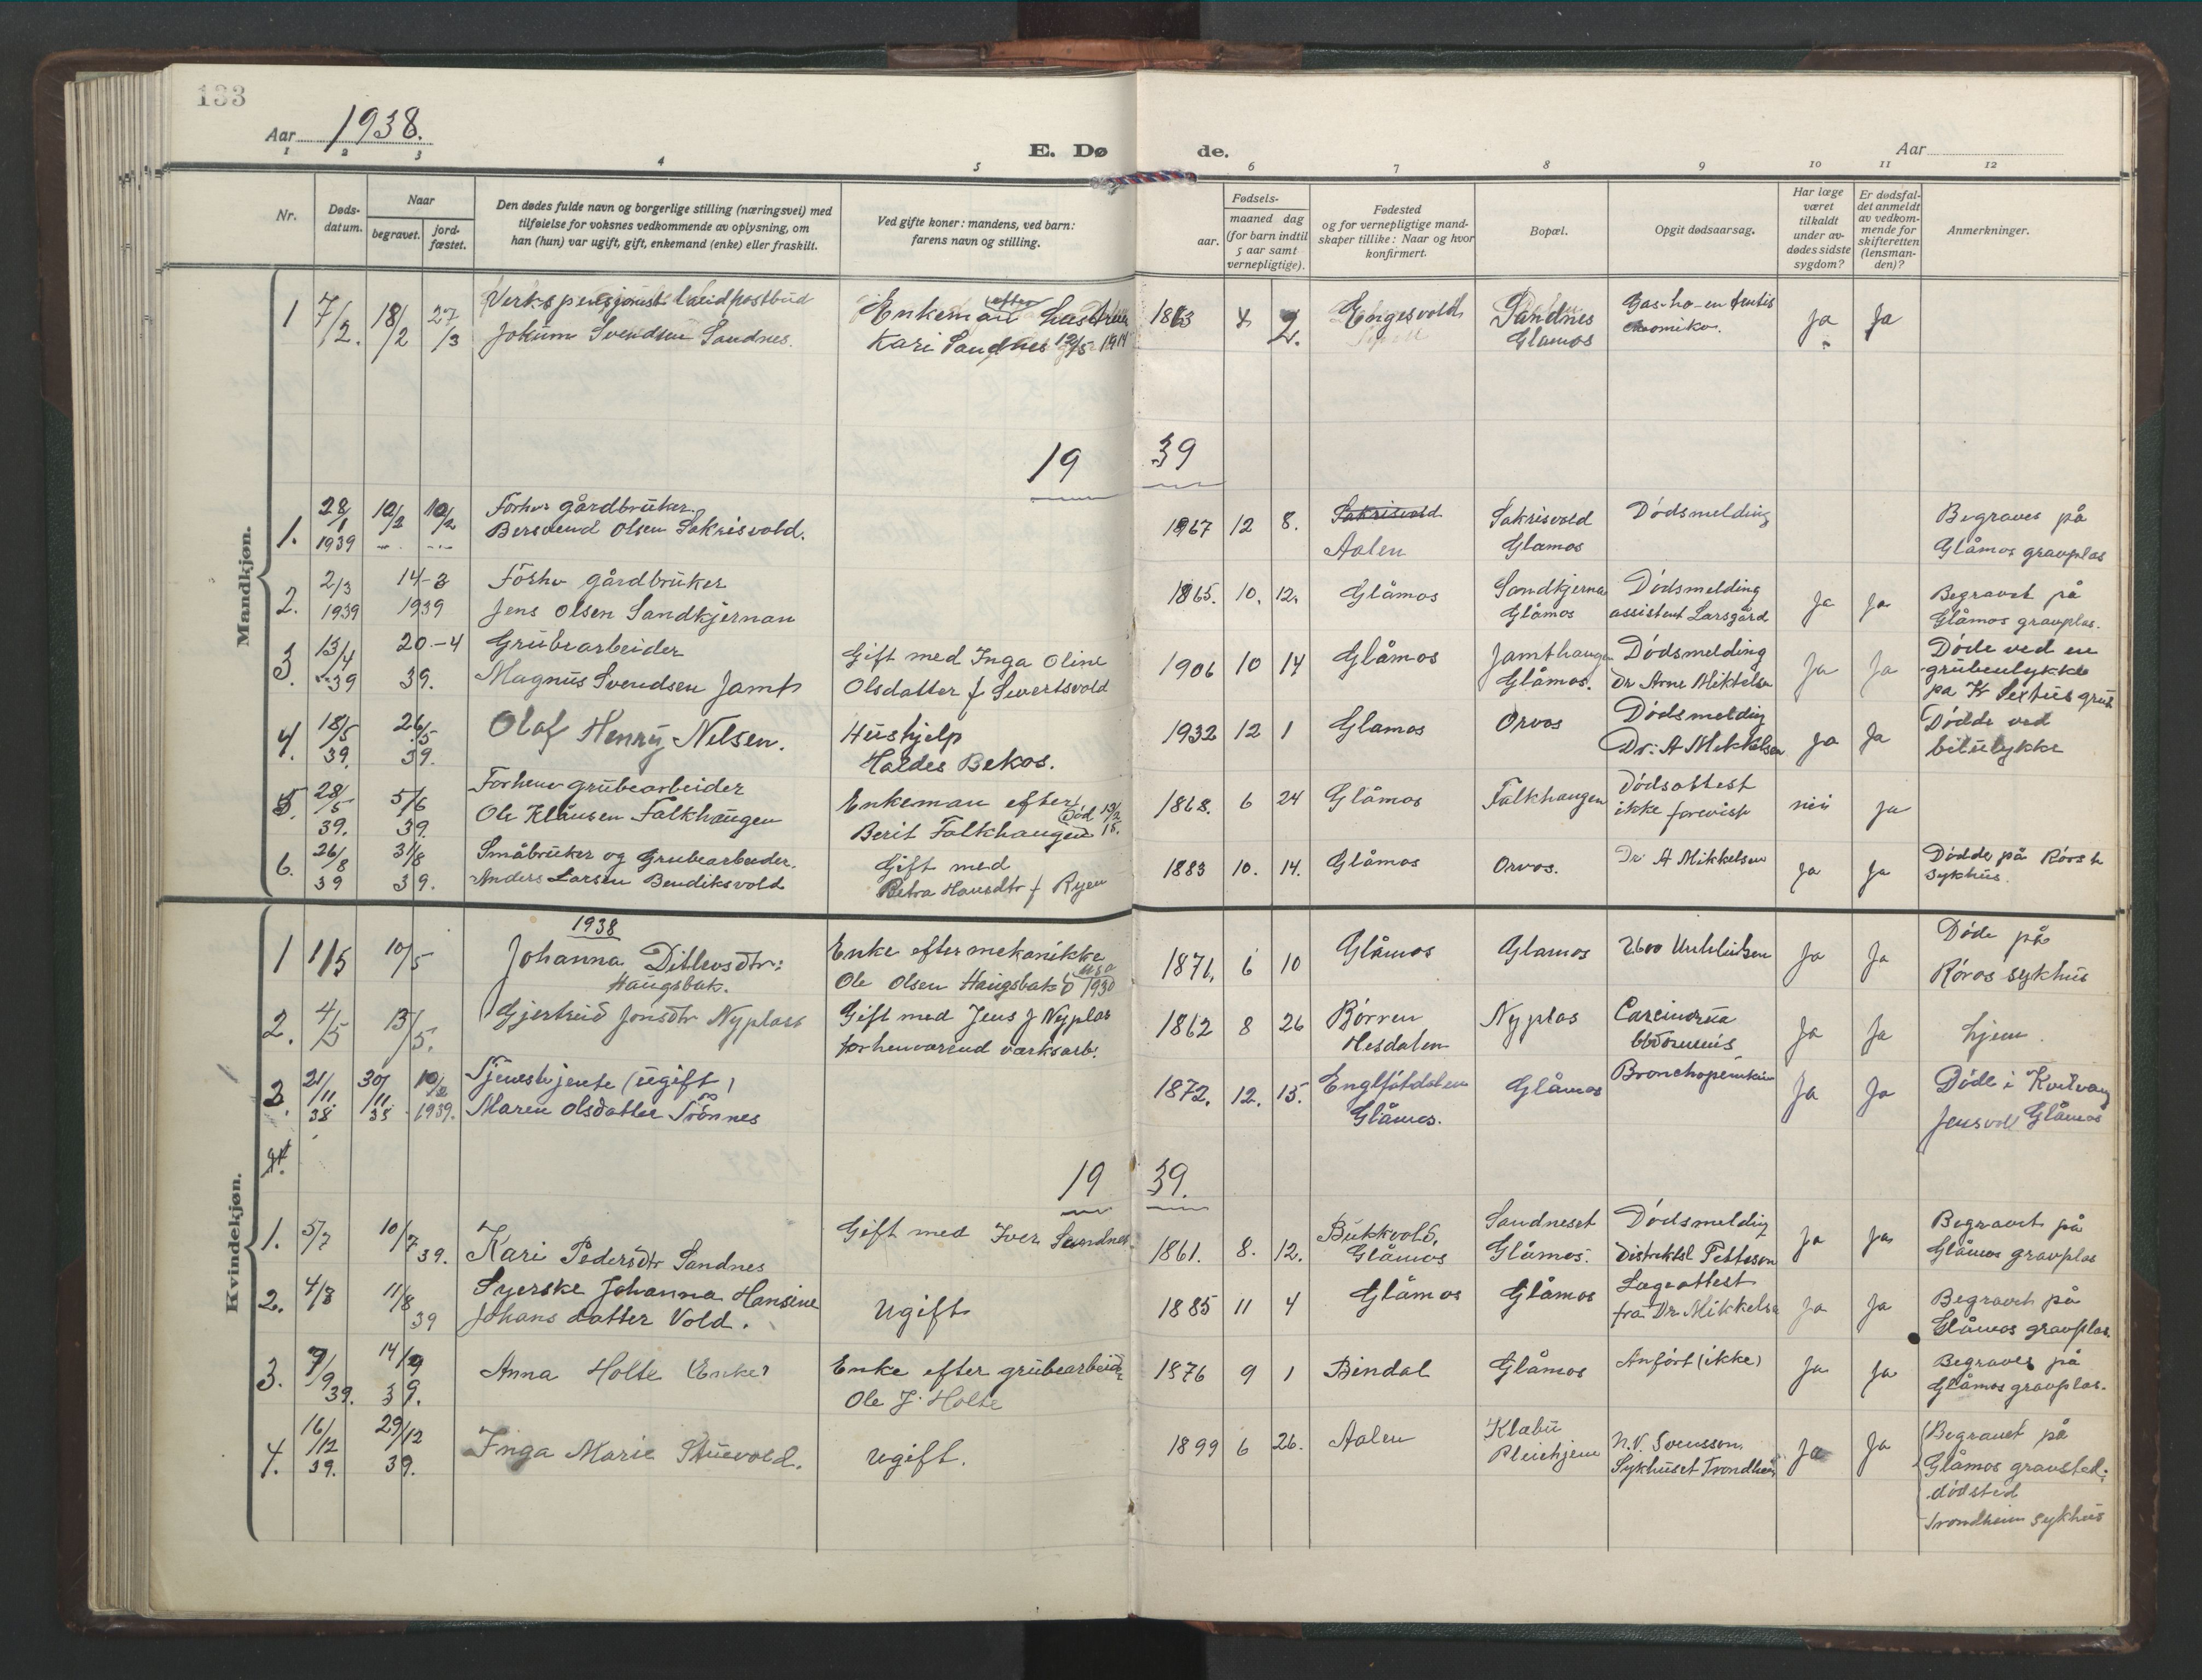 133
Aar 1938.
E. Dø de.
Aar
1 2 3 4 5 6 7 8 9 10 11 12
Nr.
Døds-
datum.
Naar
begravet.
jord-
fæstet.
Den dødes fulde navn og borgerlige stilling (næringsvei) med
tilføielse for voksnes vedkommende av oplysning, om
han (hun) var ugift, gift, enkemand (enke) eller fraskilt.
Ved gifte koner: mandens, ved barn:
farens navn og stilling.
Fødsels-
aar.
maaned dag
(for barn indtil
5 aar samt
vernepligtige).
Fødested
og for vernepligtige mand-
skaper tillike: Naar og hvor
konfirmert.
Bopæl.
Opgit dødsaarsag.
Har læge
været
tilkaldt
under av-
dødes sidste
sygdom?
Er dødsfal-
det anmeldt
av vedkom-
mende for
skifteretten
(lensman-
den)?
Anmerkninger.
Mandkjøn.
1 7/2. 18/2 27/3 Verkspensjonist landpostbud
Jokum Svendsen Sandnes.
Enkeman efter hustru
Kari Sandnes 12/5 1914
1863 2. Engesvold Sandnes
Glåmos
Ja Ja
19 39
1. 28/1 1939 12/2 12/2 Forhv gårdbruker.
Bersvend Olsen Sakrisvold.
1867 12 8. Sakrisvold
Aalen
Sakrisvold
Glamos
Dødsmelding
Begraves på
Glåmos gravplas
2. 2/3 1939 14-3 1939 Forhv gårdbruker
Jens Olsen Sandkjernan
1865. 10. 12. Glåmos Sandkjerna
Glåmos
Dødsmelding
assistent Larsgård
Ja Ja Begravet på
Glåmos gravplas.
3. 13/4 -39 20.-4 39. Grubearbeider
Magnus Svendsen Jamt
Gift med Inga Oline
Olsdatter f Sivertsvold
1906 10 14 Glåmos Jamthaugen
Glåmos.
Dødsmelding
Dr Arne Mikkelsen
Ja Ja Døde ved en
grubeulykke
på K Sextus grube
4. 18/5 39. 26/5 39. Olaf Henry Nilsen.
Hushjelp
Haldis Bekos.
1932 12 1 Glamos Orvos Dødsmelding
Dr. A Mikkelsen
Ja Ja Dødde ved
bilulykke
5. 28/5 39. 5/6 39. Forhenv grubearbeider
Ole Klausen Falkhaugen
Enkeman efter
Berit Falkhaugen
1868. 6 24 Glåmos Falkhaugen Dødsattest
ikke forevist
nei ja
6. 26/8 39 31/8 39. Småbruker og Grubearbeider.
Anders Larsen Bendiksvold
Gift med
Petra Hansdtr f Ryen
1883 10. 14. Glåmos Orvos. Dr. A Mikkelsen
Ja Ja Dødde på Røros
sykhus.
Kvindekjøn.
1938
1 1/5 10/5 Johanna Ditlevsdtr:
Haugsbak.
Enke efter mekanikke
Ole Olsen Haugsbak 1930
1871. 6 10 Glåmos Glamos
Ja Ja Døde på
Røros sykhus
2. 4/5 13/5. Gjertrud Jonsdtr Nyplass
Gift med Jens J Nyplas
forhenværend værksarb.
1862 8 26 Børren
Hesdalen
Nyplas
Ja Ja hjem.
3. 21/11 38 30/11 38 10/2 1939. Tjenestejente (ugift)
Maren Olsdatter Trönnes
1872. 12. 15. Englfötdalen
Glåmos.
Glåmos
Ja Ja Døde i Kvilvang
Jensvoll Glåmos
4.
19 39.
1. 5/7 10/7 39. Kari Pedersdtr Sandnes
Gift med Iver Sandnes
1861. 8. 12. Bukkvold.
Glåmos
Sandneset
Glåmos.
Dødsmelding
Distriktsl Petterson
Ja Ja Begravet på
Glåmos gravplas
2. 4/8 11/8 39 Syerske Johanna Hansine
Johans datter Vold.
Ugift
1885 11 4 Glåmos Glåmos Lægeattest
fra Dr. Mikkelsen
Ja Ja Begravet på
Glåmos gravplas.
3. 7/9 39. 14/9 39. Anna Holte (Enke)
Enke efter grubearbeider
Ole J. Holte
1876 9 1 Bindal Glåmos Anført (ikke)
Ja Ja Begraves på
Glåmos gravplas.
4. 16/12 39. 29/12 39. Inga Marie Stuevold.
Ugift.
1899 6 26. Aalen Klæbu
Pleiehjem
N.V. Svensson
Sykhuset Trondheim
Ja Ja Begravet på
Glåmos gravsted.
dødsted
Trondheim sykhus